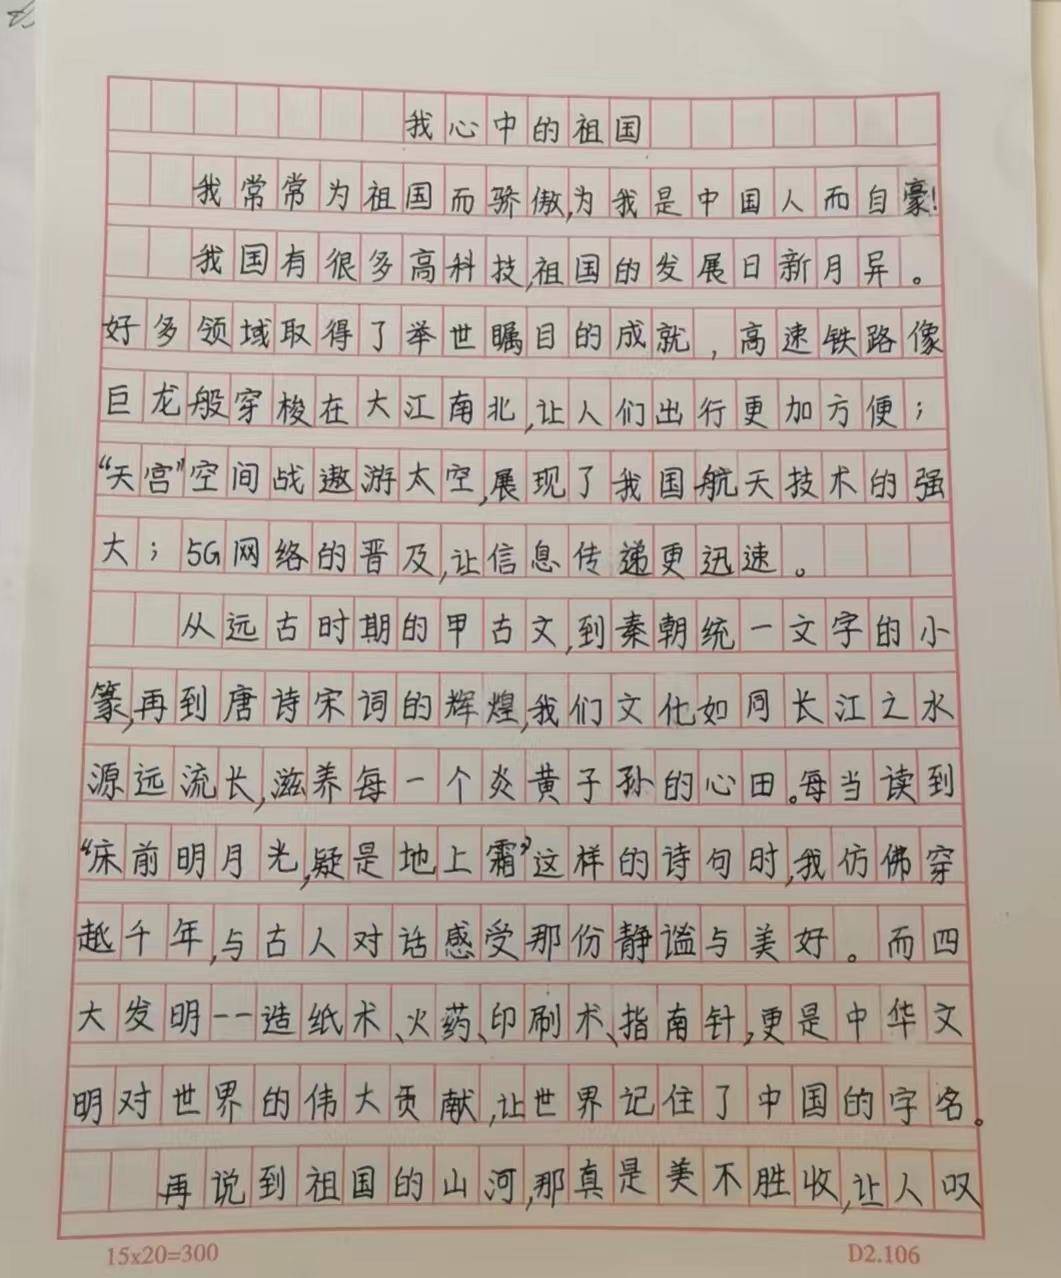 我心中的祖国
我常常为祖国而骄傲,为我是中国人而自豪!
我国有很多高科技,祖国的发展日新月异。
好多领域取得了举世瞩目的成就,高速铁路像
巨龙般穿梭在大江南北,让人们出行更加方便;
“天宫”空间战遨游太空,展现了我国航天技术的强
大;5G网络的晋及,让信息传递更迅速。
从远古时期的甲古文,到秦朝统一文字的小
篆,再到唐诗宋词的辉煌,我们文化如同长江之水
源远流长,滋养每一个炎黄子孙的心田。每当读到
“床前明月光,疑是地上霜”这样的诗句时,我仿佛穿
越千年,与古人对话感受那份静谧与美好。而四
大发明--造纸术、火药、印刷术、指南针,更是中华文
明对世界的伟大贡献,让世界记住了中国的字名。
再说到祖国的山河,那真是美不胜收,让人叹
15x20=300 D2.106